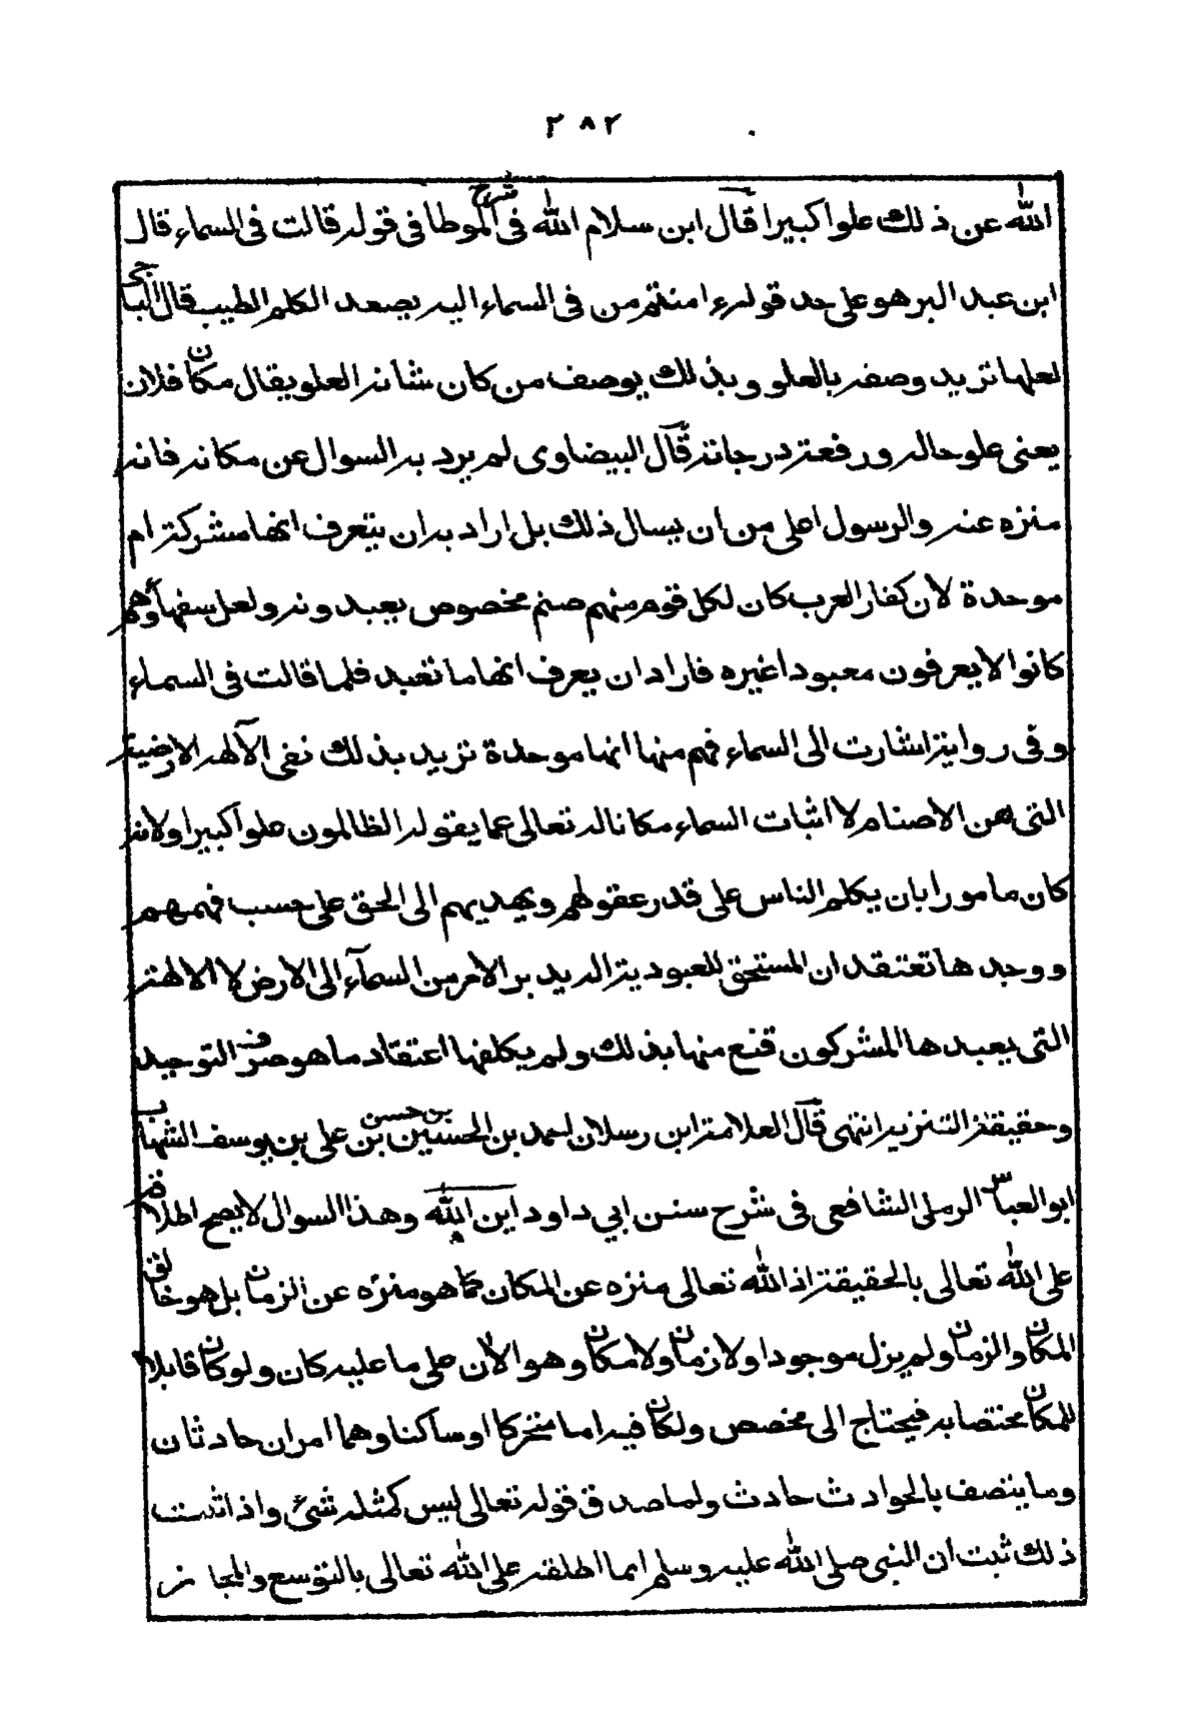 ٢٨٢
الله عن ذلك علوا كبيرا قال ابن سلام الله فى شرح الموطا فى قوله قالت فى السماء قال
ابن عبد البر هو على حد قوله ءامنتم من فى السماء اليه يصعد الكلم الطيب قال الباجى
لعلها تريد وصفه بالعلو وبذلك يوصف من كان شانه العلو يقال مكان فلان
يعنى علو حاله ورفعته درجاته قال البيضاوى لم يرد به السوال عن مكانه فانه
منزه عنه والرسول اعلى من ان يسال ذلك بل اراد به ان يتعرف انها مشركة ام
موحدة لان كفار العرب كان لكل قوم منهم صنم مخصوص يعبدونه ولعل سفهاؤهم
كانوا لا يعرفون معبودا غيره فاراد ان يعرف انها ما تعبد فلما قالت فى السماء
وفى رواية اشارت الى السماء فهم منها انها موحدة تريد بذلك نفى الآلهه الارضية
التى هن الاصنام لا اثبات السماء مكانا له تعالى عما يقوله الظالمون علوا كبيرا ولانه
كان مامورا بان يكلم الناس على قدر عقولهم ويهديهم الى الحق على حسب فهمهم
ووجدها تعتقد ان المستحق للعبودية اله يدبر الامر من السمآء الى الارض لا الالهة
التى يعبدها المشركون قنع منها بذلك ولم يكلفها اعتقاد ما هو صرف التوحيد
وحقيقة التنزيه انتهى قال العلامة ابن رسلان احمد بن الحسين بن حسن بن على بن يوسف الشهاب
ابو العباس الرملى الشافعى فى شرح سنن ابي داود اين الله وهذا السوال لا يصح اطلاقه
على الله تعالى بالحقيقة اذ الله تعالى منزه عن المكان كما هو منزه عن الزمان بل هو خالق
المكان والزمان ولم يزل موجودا ولا زمان ولا مكان وهو الآن على ما عليه كان ولو كان قابلا
للمكان مختصا به فيحتاج الى مخصص ولكان فيه اما متحركا او ساكنا وهما امران حادثان
وما يتصف بالحوادث حادث ولما صدق قوله تعالى ليس كمثله شئ واذا ثبت
ذلك ثبت ان النبى صلى الله عليه وسلم انما اطلقه على الله تعالى بالتوسع والمجاز